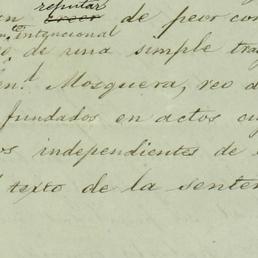 reputar
en creer de peor con
intencional
de una simple tra
en.l Mosquera, reo d
fundados en actos cu
os independientes de
l texto de la senten